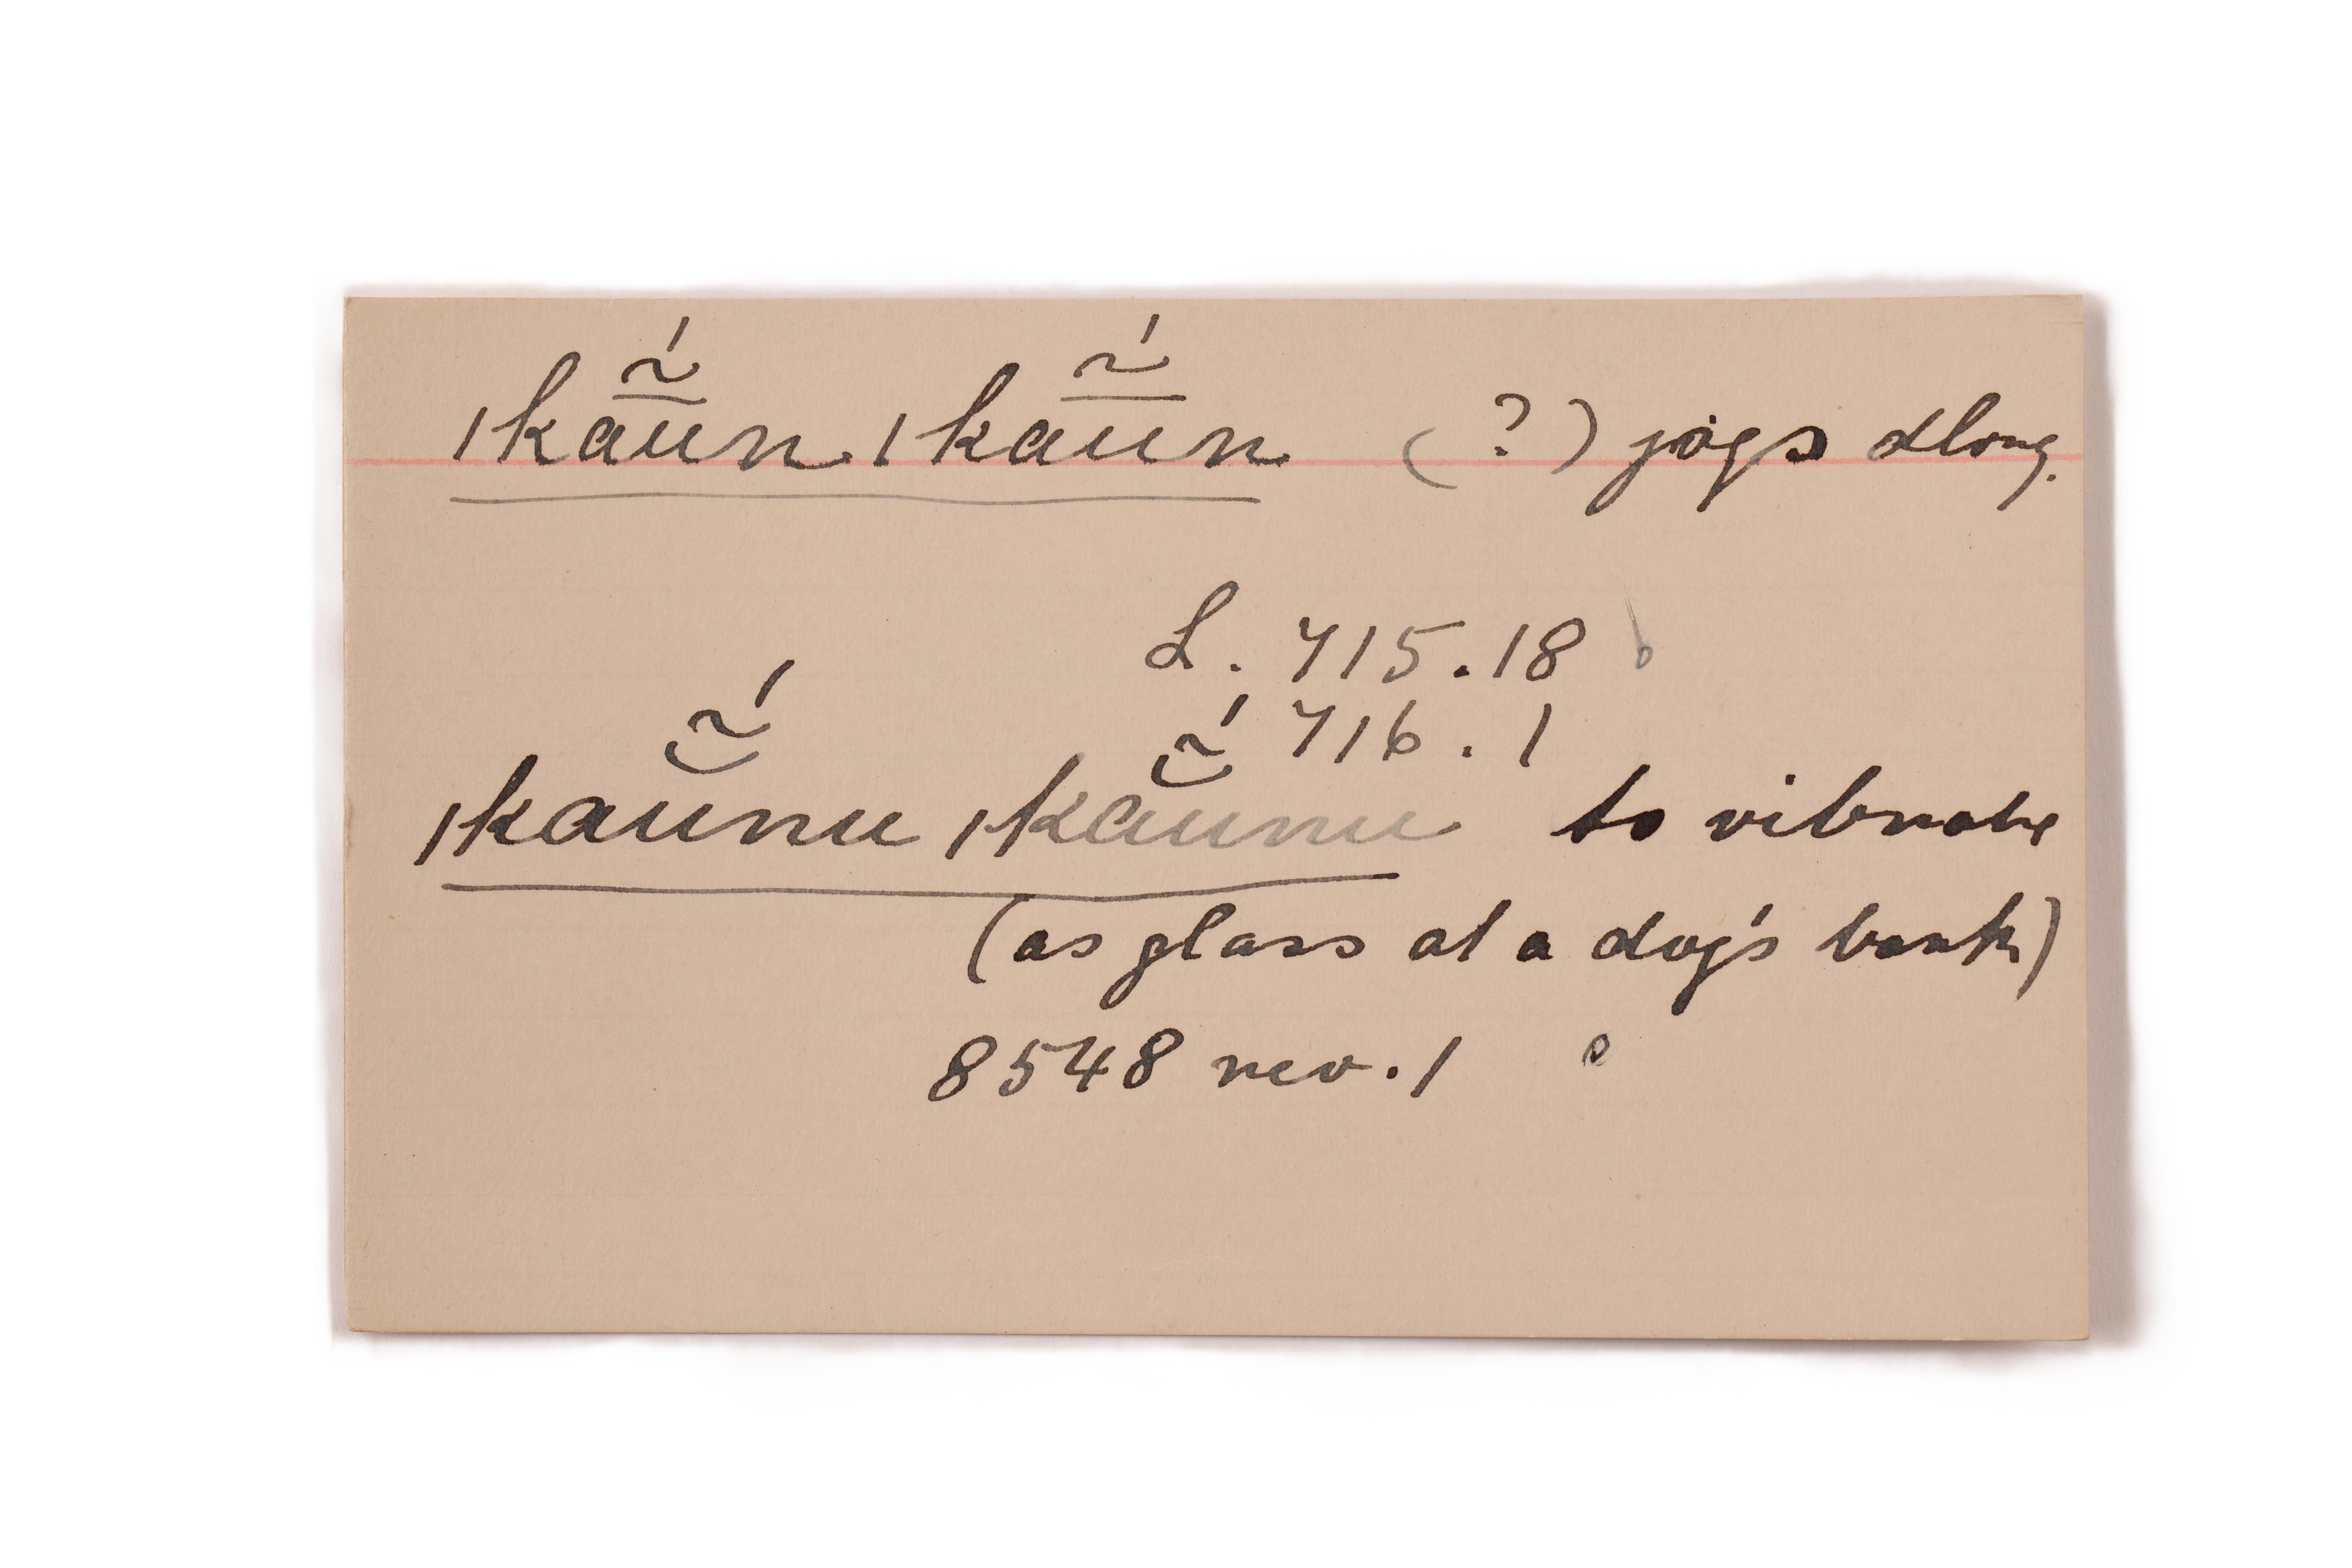 ǀkā̰́un ǀkā̰́un (?) jogs along.
L. 715.18
716.1
ǀkaṵ̆́nu ǀkaṵ̆́nu to vibrate
(as glass at a dog's bark)
8548 rev. 1